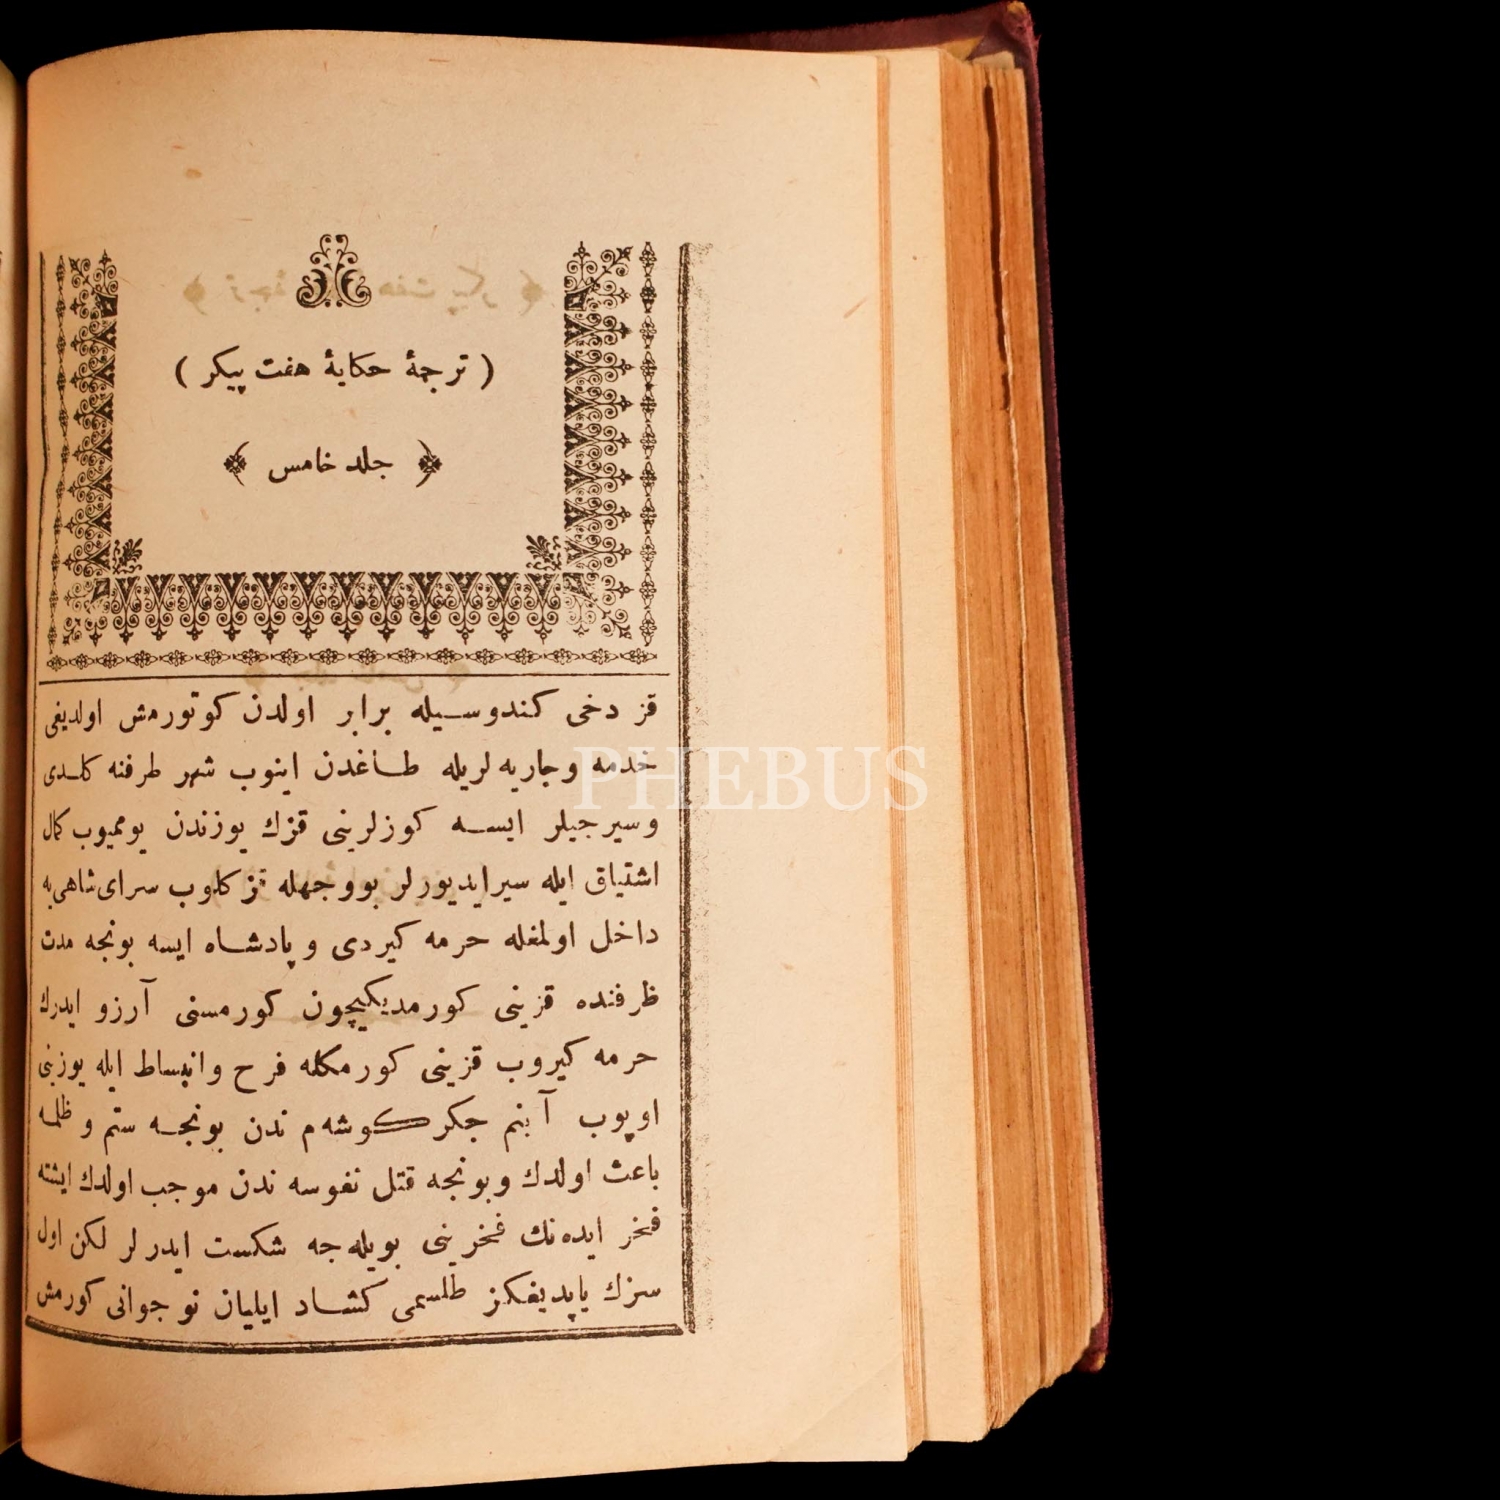 ( ترجمۀ حكایۀ هفت پیكر )
جلد خامس
قز دخی كندوسیله برابر اولدن كوتورمش اولدیغی
خدمه و جاریه لریله طاغدن اینوب شهر طرفنه كلدی
و سیرجیلر ایسه كوزلرینی قزك یوزندن یوممیوب كمال
اشتیاق ایله سیر ایدیورلر بو وجهله قز كلوب سرای شاهی به
داخل اولمغله حرمه كیردی و پادشاه ایسه بونجه مدت
ظرفنده قزینی كورمدیكیچون كورمسنی آرزو ایدرك
حرمه كیروب قزینی كورمكله فرح و انبساط ایله یوزینی
اوپوب آ بنم جكر كوشه م ندن بونجه ستم و ظلمه
باعث اولدك و بونجه قتل نفوسه ندن موجب اولدك ایشته
فخر ایده نك فخرینی بویله جه شكست ایدرلر لكن اول
سزك یاپدیغكز طلسمی كشاد ایلیان نو جوانی كورمش
PHEBUS